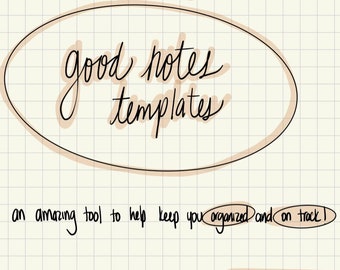 good notes
templates
an amazing tool to help keep you organized and on track!